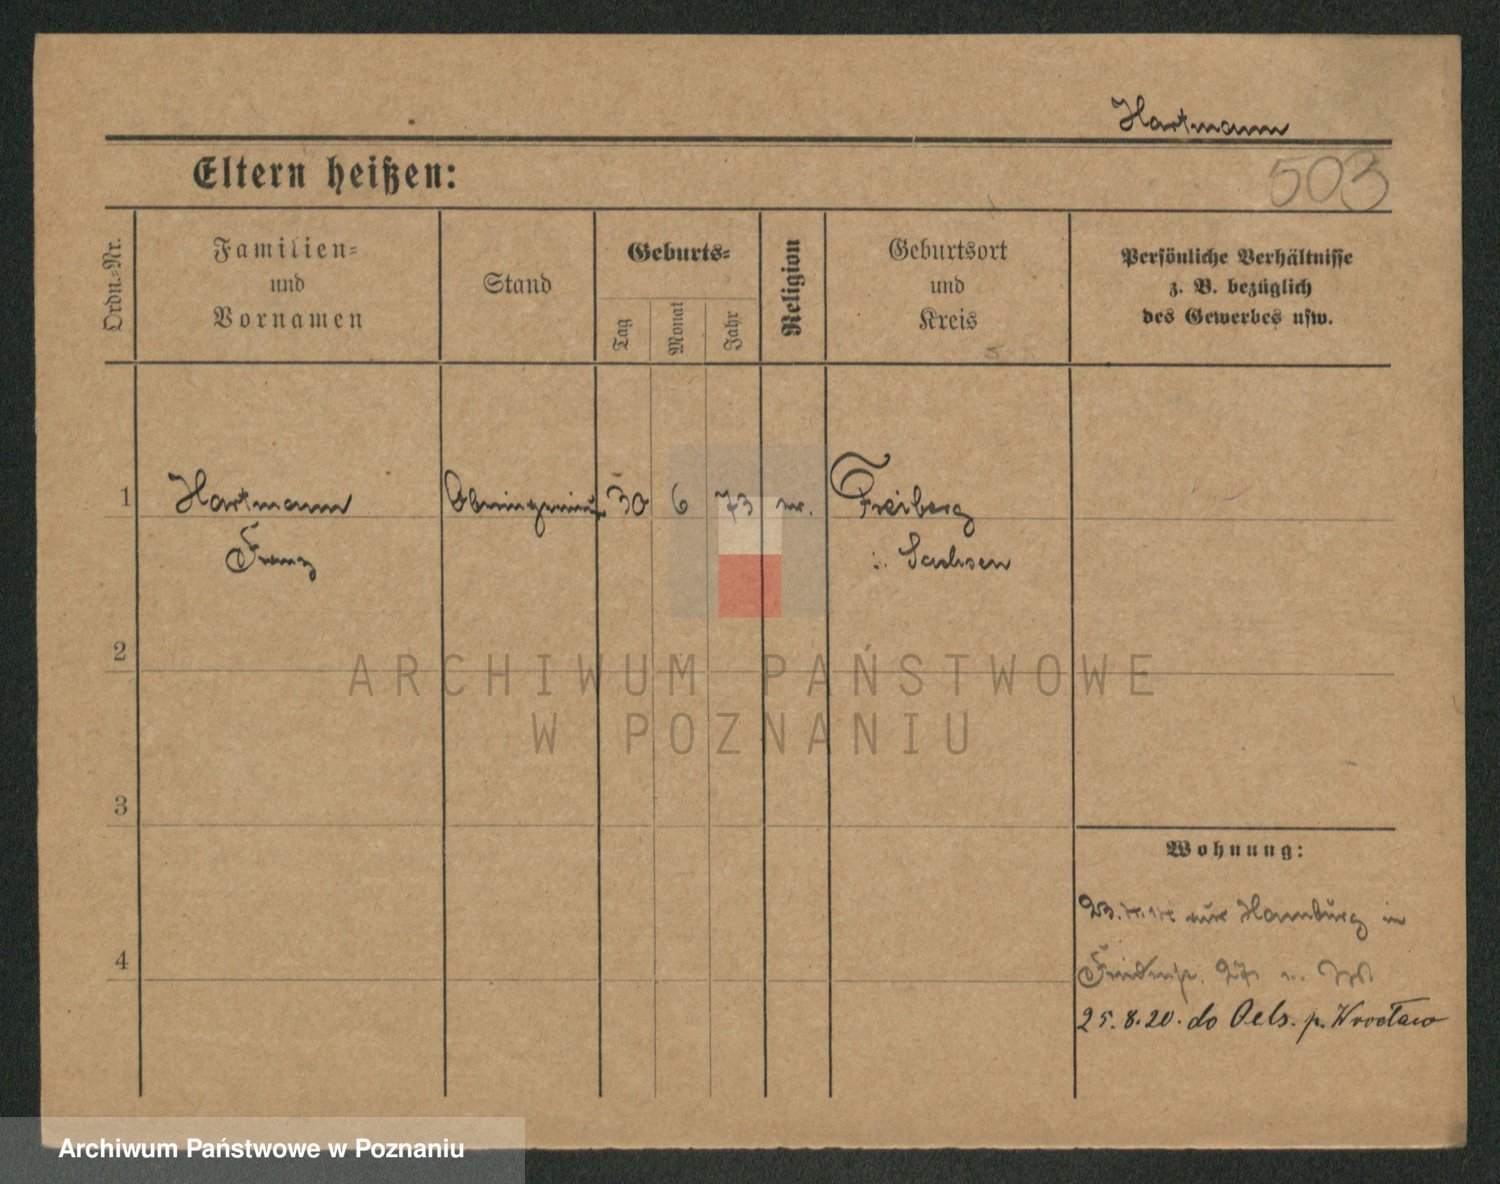 Hartmann
Eltern heißen:
503
Ordn.=Nr.
Familien=
und
Vornamen
Stand
Geburts=
Tag
Monat
Jahr
Religion
Geburtsort
und
Kreis
Persönliche Verhältnisse
z. B. bezüglich
des Gewerbes usw.
1
Hartmann
Franz
Oberingenieur
30
6
73
Freiberg
i. Sachsen
2
3
4
Wohnung:
23. aus Hamburg in
25.8.20. do Oels. p. Wrocław
ARCHIWUM PAŃSTWOWE
W POZNANIU
Archiwum Państwowe w Poznaniu